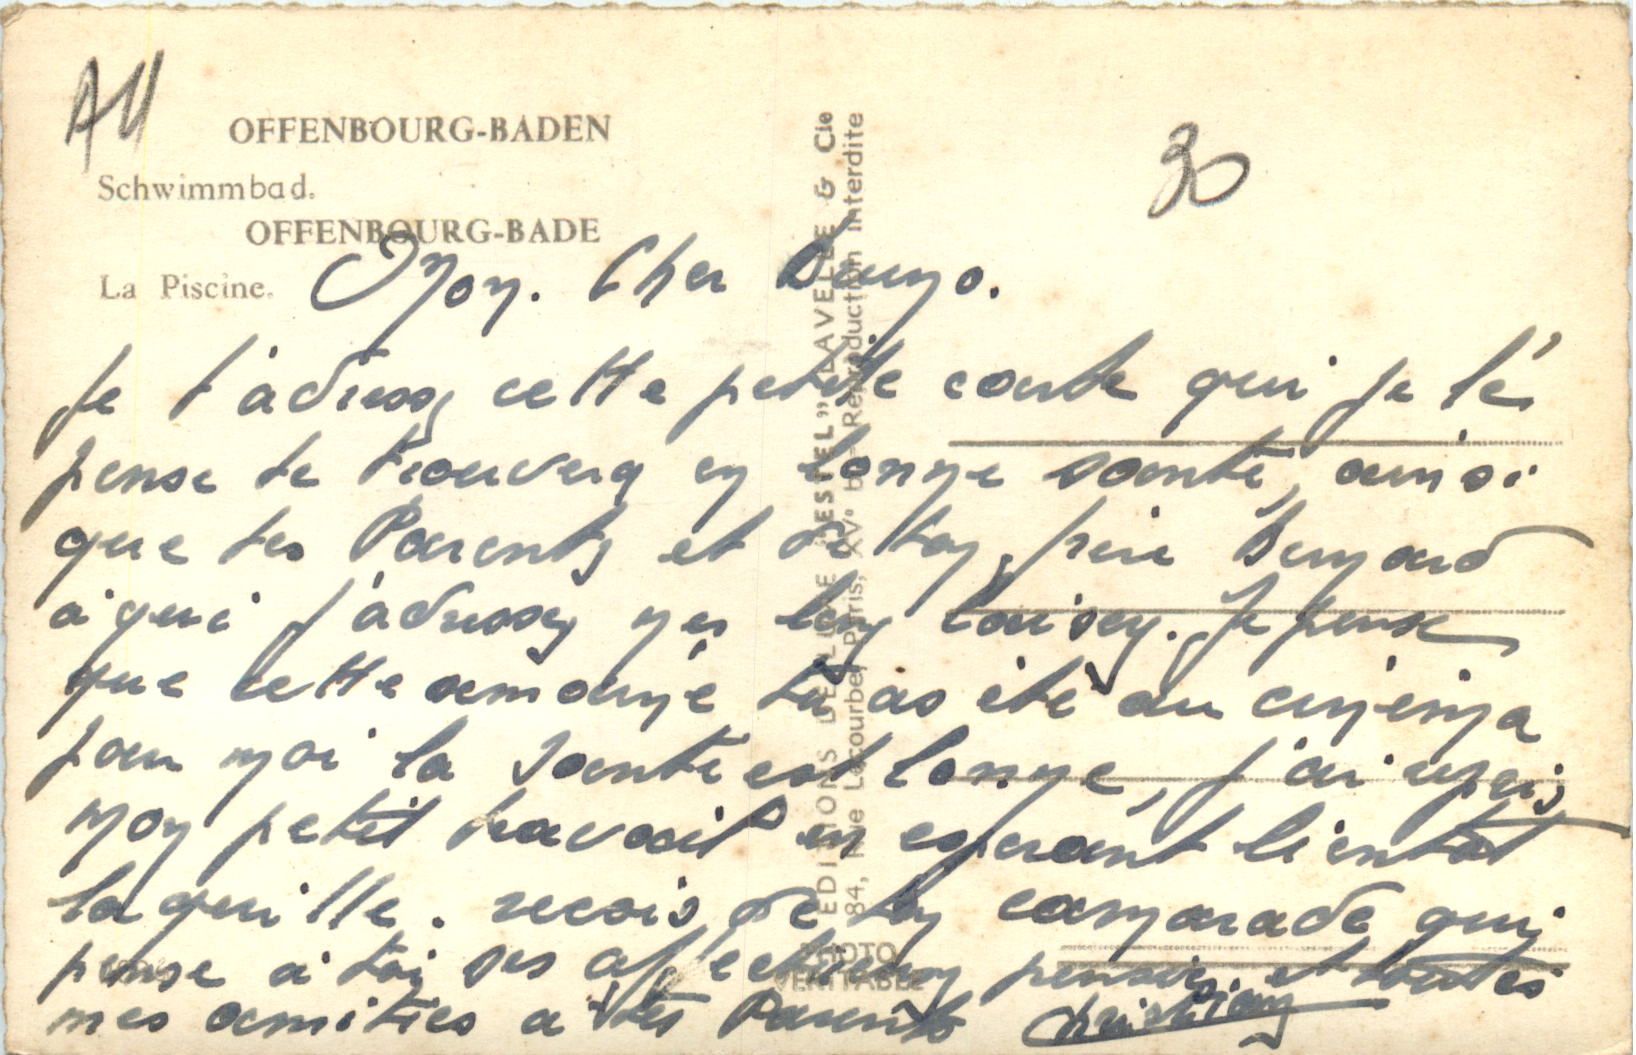 AU
OFFENBOURG-BADEN
Schwimmbad.
OFFENBOURG-BADE
La Piscine.
30
Mon. Cher
Je t'adresse cette petite carte qui je
pense te trouvera en bonne santé, ainsi
que tes Parents et de ton frère Bernard
à qui j'adresse mes bon baisers. Je pense
que cette année tu as été au cinéma
pour moi la santé est bonne, j'ai
mon petit travail en espérant bientôt
la quille. recois de ton camarade qui
pense à toi ses affectueuses pensées et toutes
mes amitiés a tes Parents Christian
EDITIONS DE LUXE "ESTEL" LAVELLE & Cie
84, Rue Lecourbe, Paris, XVe — Reproduction interdite
PHOTO
VERITABLE